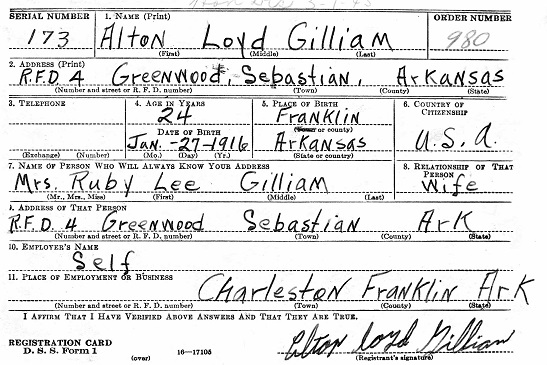 SERIAL NUMBER 1. NAME (Print) ORDER NUMBER
173 Alton Loyd Gilliam 980
(First) (Middle) (Last)
2. ADDRESS (Print)
R.F.D 4 Greenwood, Sebastian, Arkansas
(Number and street or R. F. D. number) (Town) (County) (State)
3. TELEPHONE 4. AGE IN YEARS 5. PLACE OF BIRTH 6. COUNTRY OF CITIZENSHIP
24 Franklin
(Town or county)
DATE OF BIRTH U.S.A.
Jan.-27-1916 Arkansas
(Exchange) (Number) (Mo.) (Day) (Yr.) (State or country)
7. NAME OF PERSON WHO WILL ALWAYS KNOW YOUR ADDRESS 8. RELATIONSHIP OF THAT PERSON
Mrs. Ruby Lee Gilliam Wife
(Mr., Mrs., Miss) (First) (Middle) (Last)
9. ADDRESS OF THAT PERSON
R.F.D. 4 Greenwood Sebastian Ark
(Number and street or R. F. D. number) (Town) (County) (State)
10. EMPLOYER'S NAME
Self
11. PLACE OF EMPLOYMENT OR BUSINESS
Charleston Franklin Ark
(Number and street or R. F. D. number) (Town) (County) (State)
I AFFIRM THAT I HAVE VERIFIED ABOVE ANSWERS AND THAT THEY ARE TRUE.
REGISTRATION CARD Alton Loyd Gilliam
D. S. S. Form 1 (over) 16—17105 (Registrant's signature)